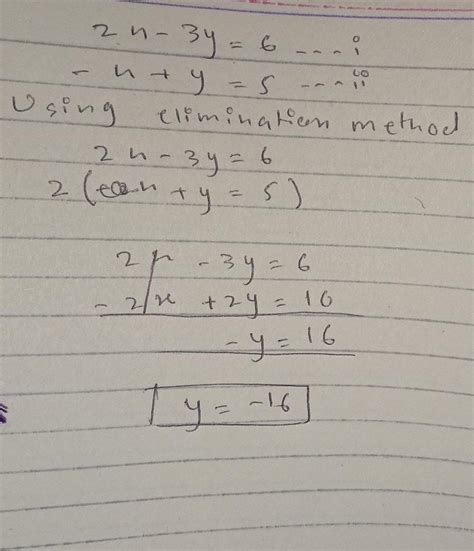 2x - 3y = 6 ---- i
- x + y = 5 ---- ii
Using elimination method
2x - 3y = 6
2 (-x + y = 5)
2x - 3y = 6
- 2x + 2y = 10
- y = 16
y = -16